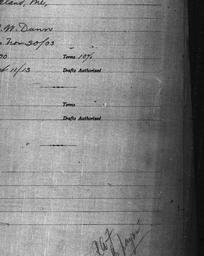 land, Me,
W. Dunn
Nov 30/03
00 Terms 10%
11/13 Drafts Authorized
Terms
Drafts Authorized